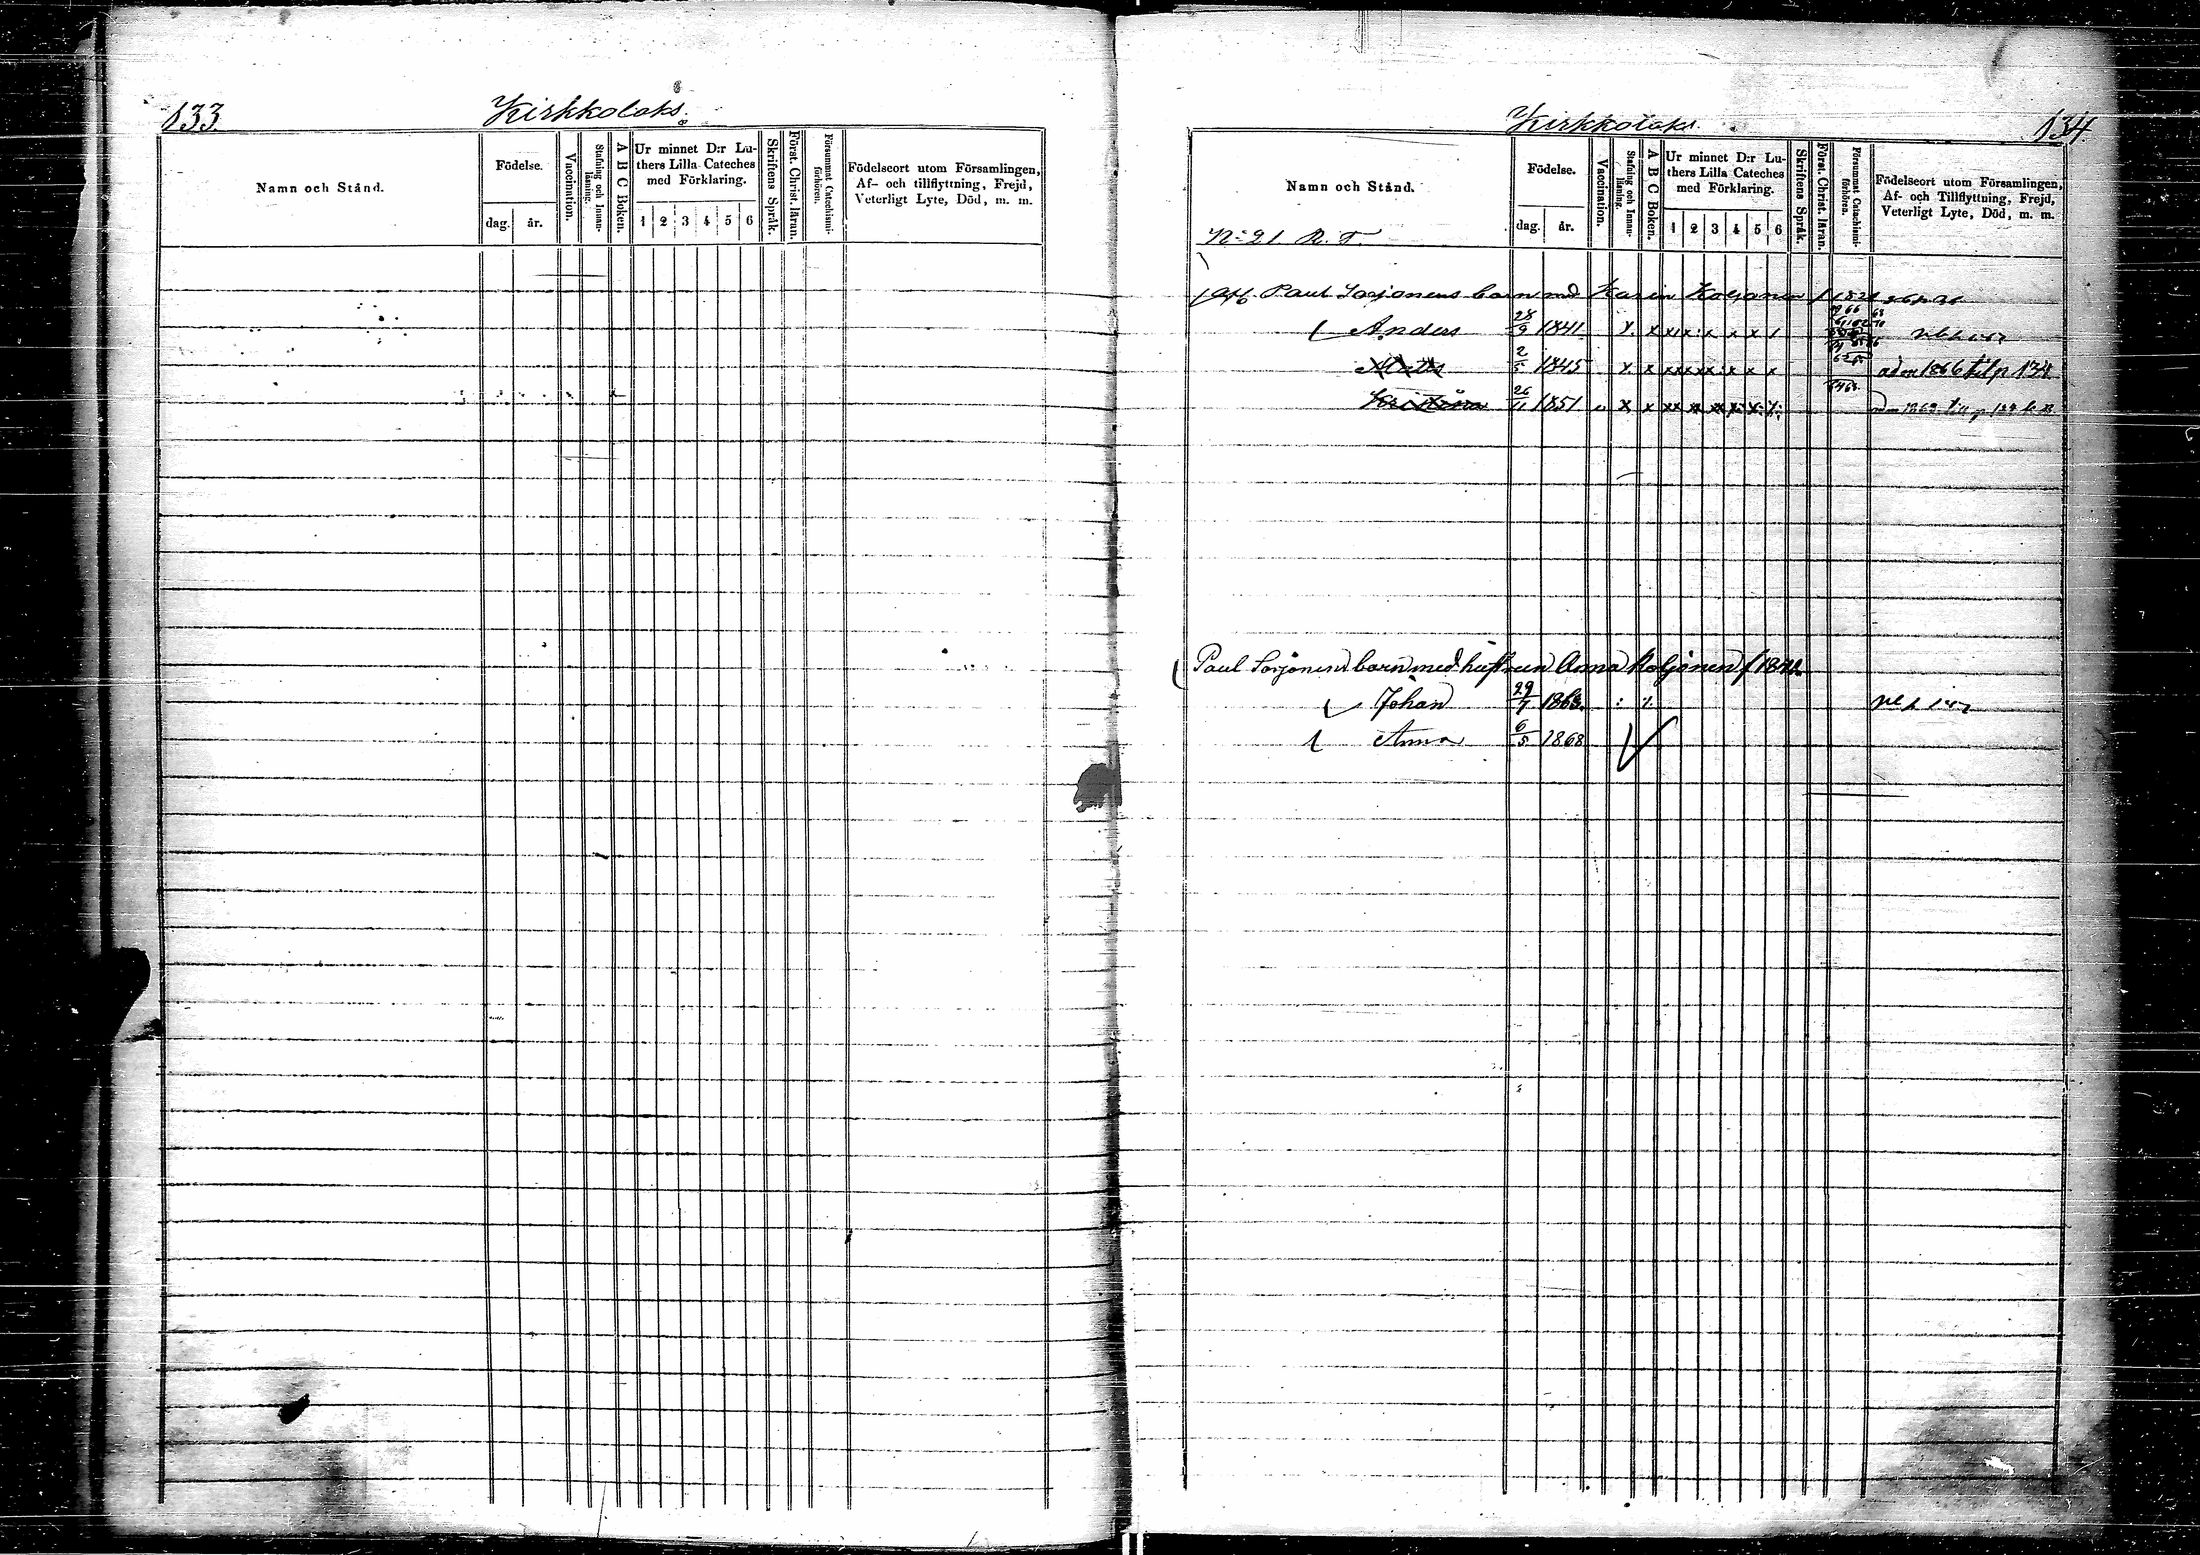 133 Kirkkolaks
Namn och Stånd.
Födelse.
dag. år.
Vaccination.
Stafning och Innan-
läsning.
A B C Boken.
Ur minnet D:r Lu-
thers Lilla Cateches
med Förklaring.
1 2 3 4 5 6
Skriftens Språk.
Först. Christ. läran.
Försummat Catechismi-
förhören.
Födelseort utom Församlingen,
Af- och tillflyttning, Frejd,
Veterligt Lyte, Död, m. m.
Kirkkolaks 134
Namn och Stånd.
Födelse.
dag. år.
Vaccination.
Stafning och Innan-
läsning.
A B C Boken.
Ur minnet D:r Lu-
thers Lilla Cateches
med Förklaring.
1 2 3 4 5 6
Skriftens Språk.
Först. Christ. läran.
Försummat Catechismi-
förhören.
Födelseort utom Församlingen,
Af- och Tillflyttning, Frejd,
Veterligt Lyte, Död, m. m.
No 21 R. T.
Paul Sorjonens barn med Karin Koljonen f 1821
Anders 28/9 1841 x x x x x x
Matts 2/5 1845 x x x x x x 1866 till p 134
Kristina 26/11 1851 x x x x x x x
Paul Sorjonens barn med hustrun Anna Koljonen f 18
Johan 29/7 1863
Anna 6/5 1868